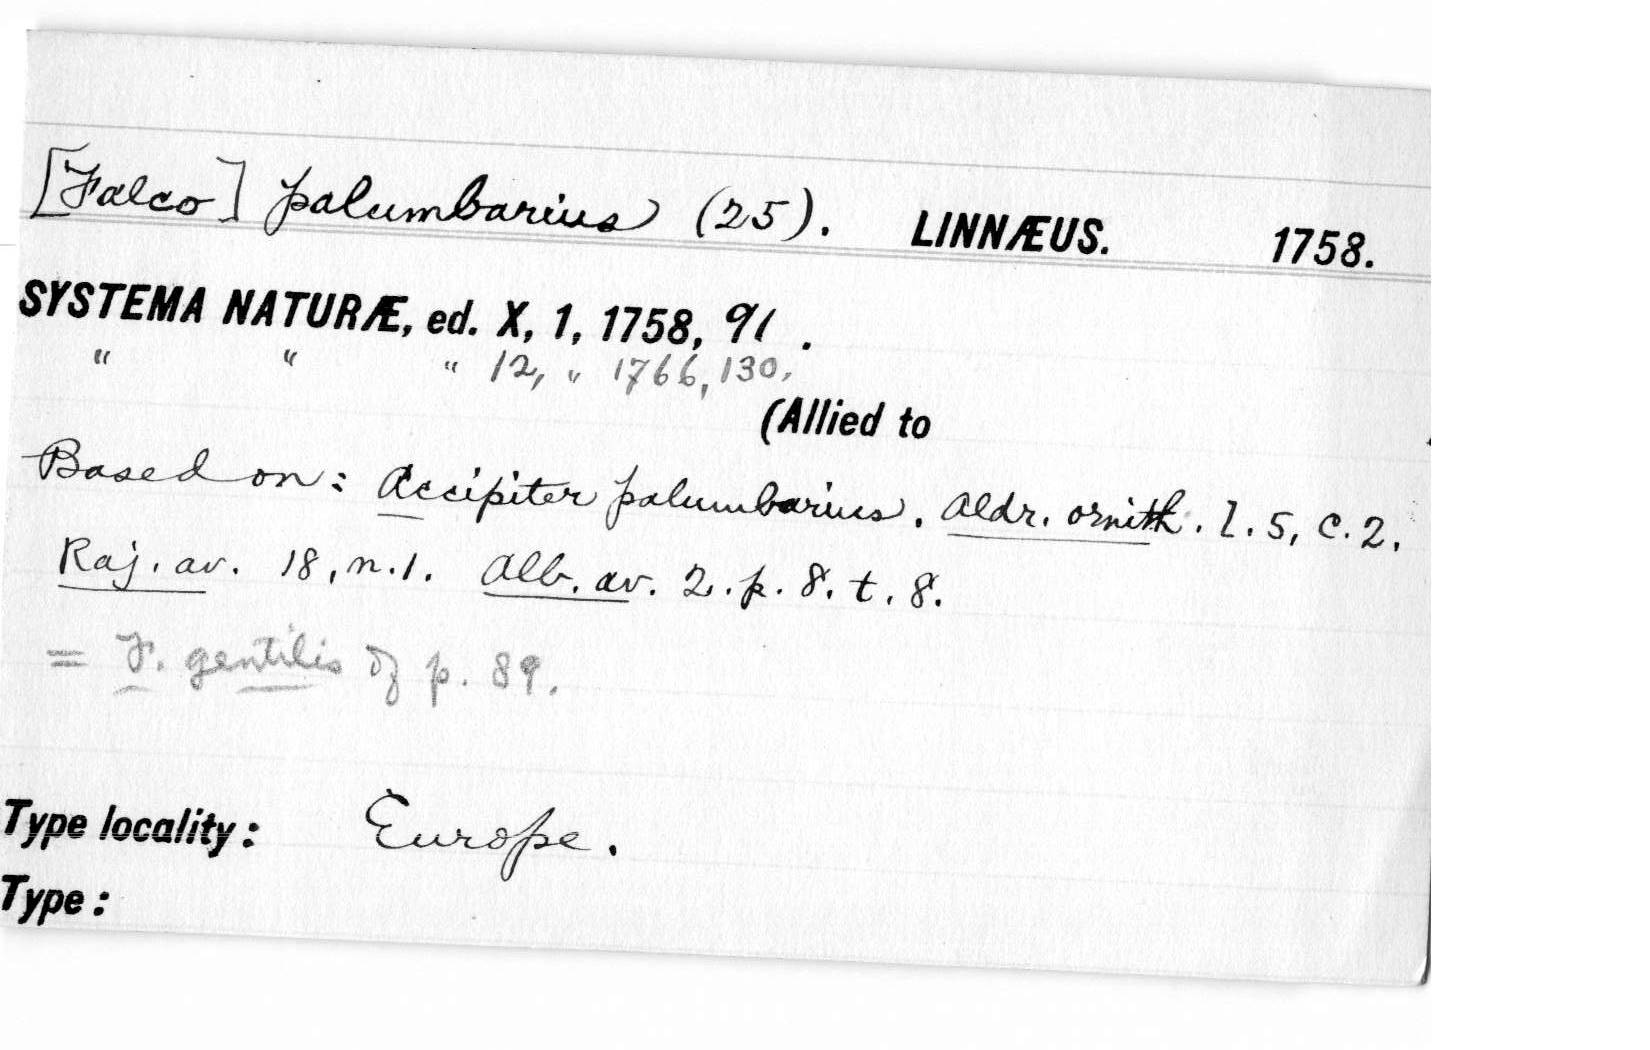 [Falco] palumbarius (25). LINNÆUS. 1758.
SYSTEMA NATURÆ, ed. X, 1, 1758, 91.
" " " 12, " 1766, 130.
(Allied to
Based on: Accipiter palumbarius. Aldr. ornith. l. 5, c. 2.
Raj. av. 18, n. 1. Alb. av. 2. p. 8. t. 8.
= F. gentilis of p. 89.
Type locality: Europe.
Type: